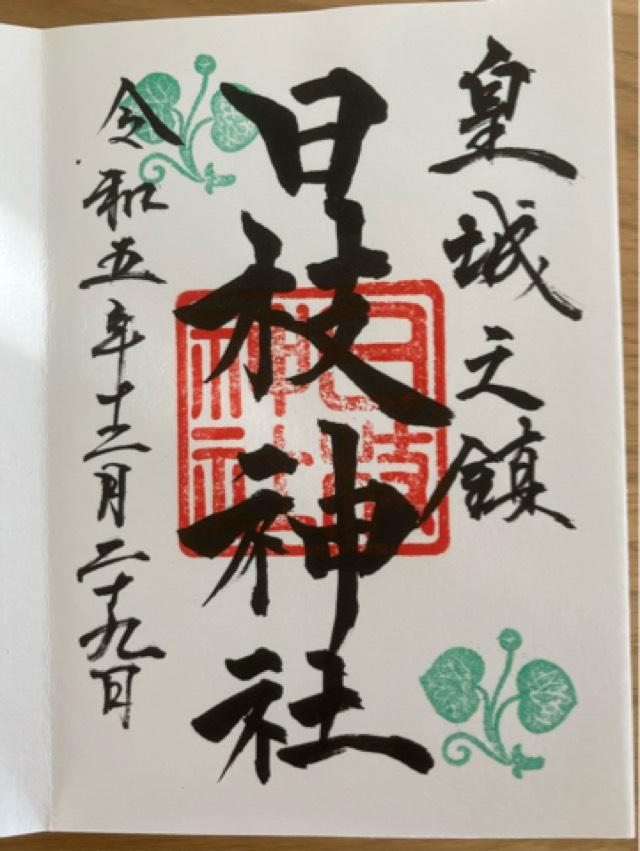 皇城之鎮
日枝神社
日枝神社
令和五年十二月二十九日